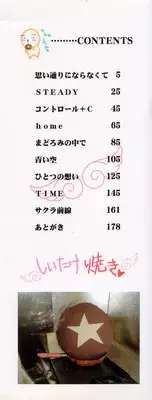 ………CONTENTS
思い通りにならなくて 5
STEADY 25
コントロール＋C 45
home 65
まどろみの中で 85
青い空 105
ひとつの想い 125
TIME 145
サクラ前線 161
あとがき 178
しいたけ焼き